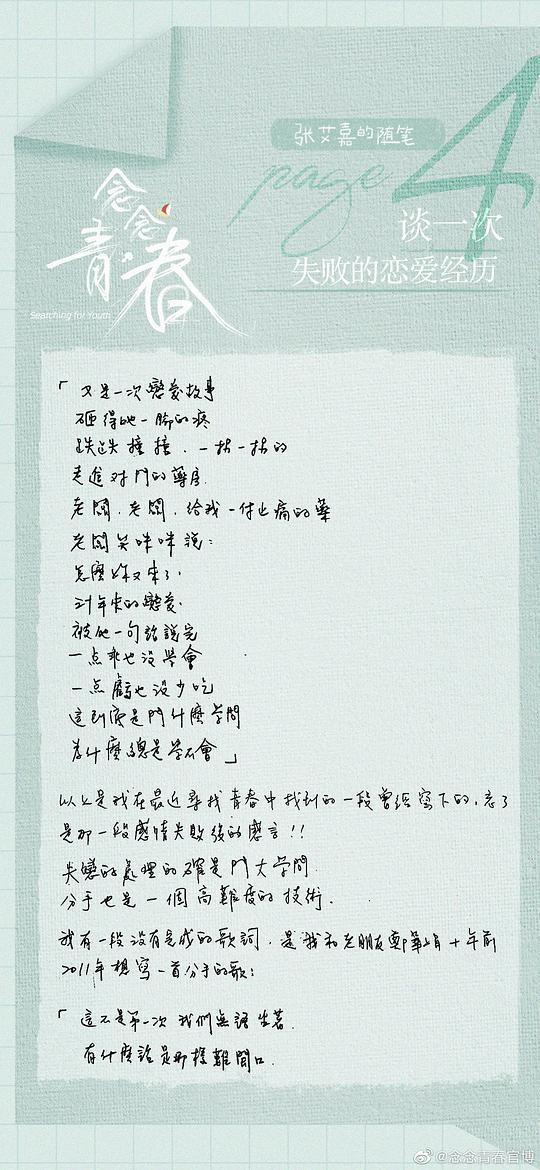 张艾嘉的随笔
page 4
谈一次
失败的恋爱经历
念念青春
Searching for Youth
「又是一次戀愛故事
砸得她一腳的疼
跌跌撞撞．一拐一拐的
走進對門的藥房
老闆．老闆．給我一付止痛的藥
老闆笑咪咪說：
怎麼妳又來了．
對年來的戀愛
被他一句話說完
一点乖也沒學會
一点虧也沒少吃
這到底是門什麼學問
為什麼總是學不會」
以上是我在最近尋找青春中找到的一段曾經寫下的．忘了
是那一段感情失敗後的感言！！
失戀的處理的確是門大學問
分手也是一個高難度的技術．
我有一段沒有完成的歌詞．是我和老朋友鄭華娟十年前
2011年想寫一首分手的歌：
「這不是第一次 我們無語坐著．
有什麼話是那樣難開口．
@念念青春官博